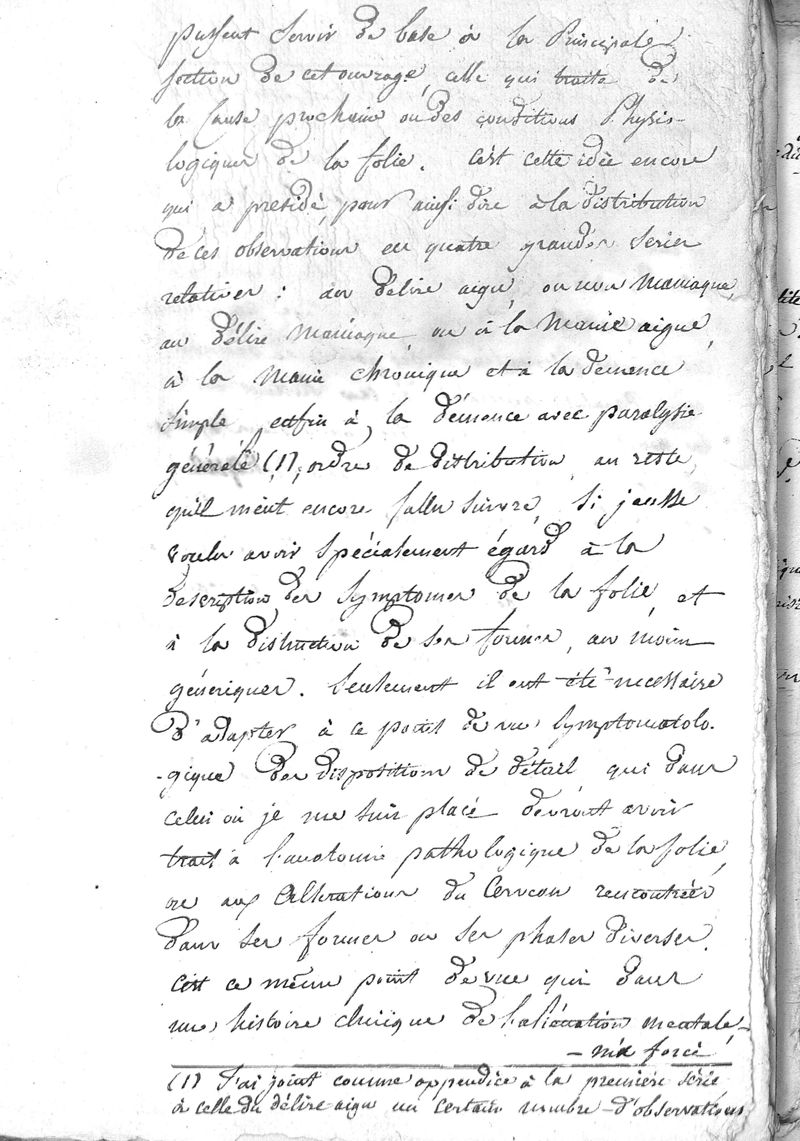 pussent servir de base à la Principale
section de cet ouvrage, celle qui traite de
la Cause prochaine ou des conditions Physio-
logiques de la folie. C'est cette idée encore
qui a présidé, pour ainsi dire à la distribution
de ces observations en quatre grandes séries
relatives : au délire aigu, ou non maniaque,
au délire maniaque, ou à la Manie aigue,
à la Manie chronique et à la démence
simple enfin à la démence avec paralysie
générale (1), ordre de distribution, au reste,
qu'il m'eût encore fallu suivre, si j'eusse
voulu avoir spécialement égard à la
description des symptomes de la folie, et
à la distinction de ses formes, au moins
génériques. Seulement il eut été nécessaire
d'adapter à ce point de vue symptomatolo-
-gique des dispositions de détail qui dans
celui où je me suis placé devront avoir
trait à l'anatomie pathologique de la folie,
ou aux altérations du Cerveau rencontrées
dans ses formes ou ses phases diverses.
C'est ce même point de vue qui dans
une histoire clinique de l'aliénation mentale,
- m'a forcé
(1) J'ai joint comme appendice à la première série
à celle du délire aigu un certain nombre d'observations